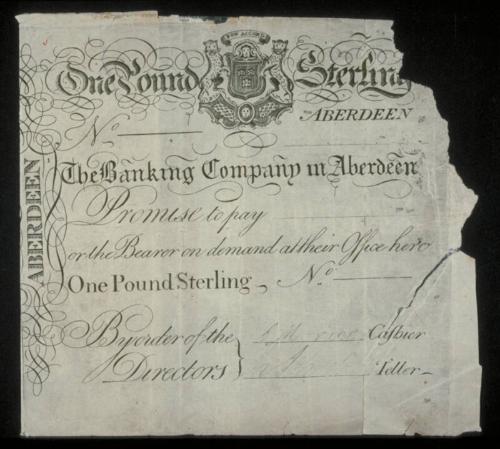 BON ACCORD
One Pound Sterling
ABERDEEN
No
The Banking Company in Aberdeen
Promise to pay
or the Bearer on demand at their Office here
One Pound Sterling No
By order of the Cashier
Directors Teller
ABERDEEN